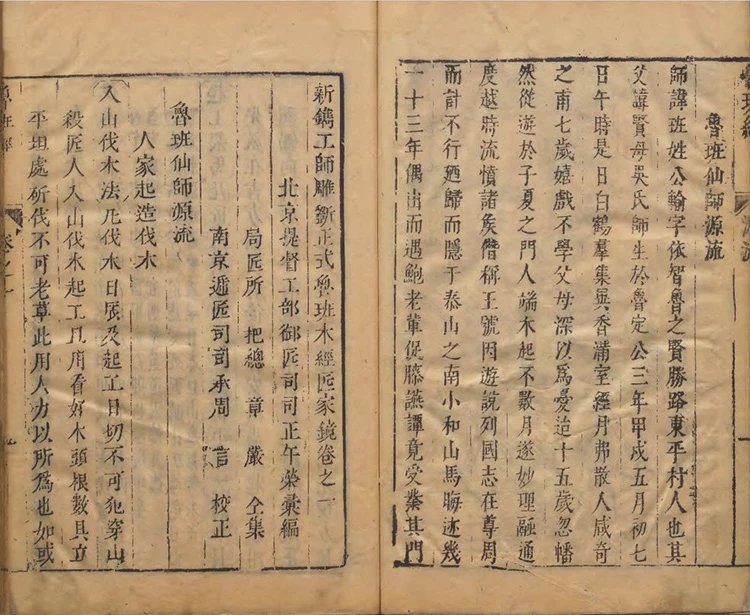 魯班仙師源流
師諱班姓公輸字依智魯之賢勝路東平村人也其
父諱賢母吳氏師生於魯定公三年甲戌五月初七
日午時是日白鶴羣集異香滿室經月弗散人咸奇
之甫七歲嬉戲不學父母深以為憂迨十五歲忽幡
然從遊於子夏之門人端木起不數月遂妙理融通
度越時流憤諸矦僭稱王號因遊說列國志在尊周
而計不行廼歸而隱于泰山之南小和山馬晦迹幾
一十三年偶出而遇鮑老輩促膝讌譚竟受業其門
新鐫工師雕斲正式魯班木經匠家鏡卷之一
北京提督工部御匠司司正午榮彙編
局匠所把總章嚴全集
南京遞匠司司承周言校正
魯班仙師源流
人家起造伐木
入山伐木法凡伐木日辰及起工日切不可犯穿山
殺匠人入山伐木起工且用看好木頭根數具立
平坦處斫伐不可老草此用人力以所為也如或
卷之一